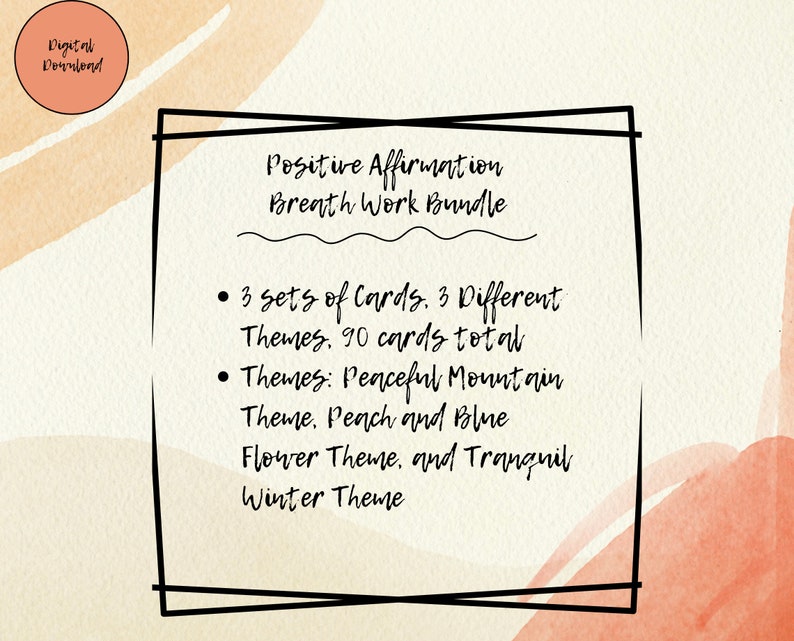 Digital
Download
Positive Affirmation
Breath Work Bundle
• 3 sets of Cards, 3 Different
Themes, 90 cards total
• Themes: Peaceful Mountain
Theme, Peach and Blue
Flower Theme, and Tranquil
Winter Theme